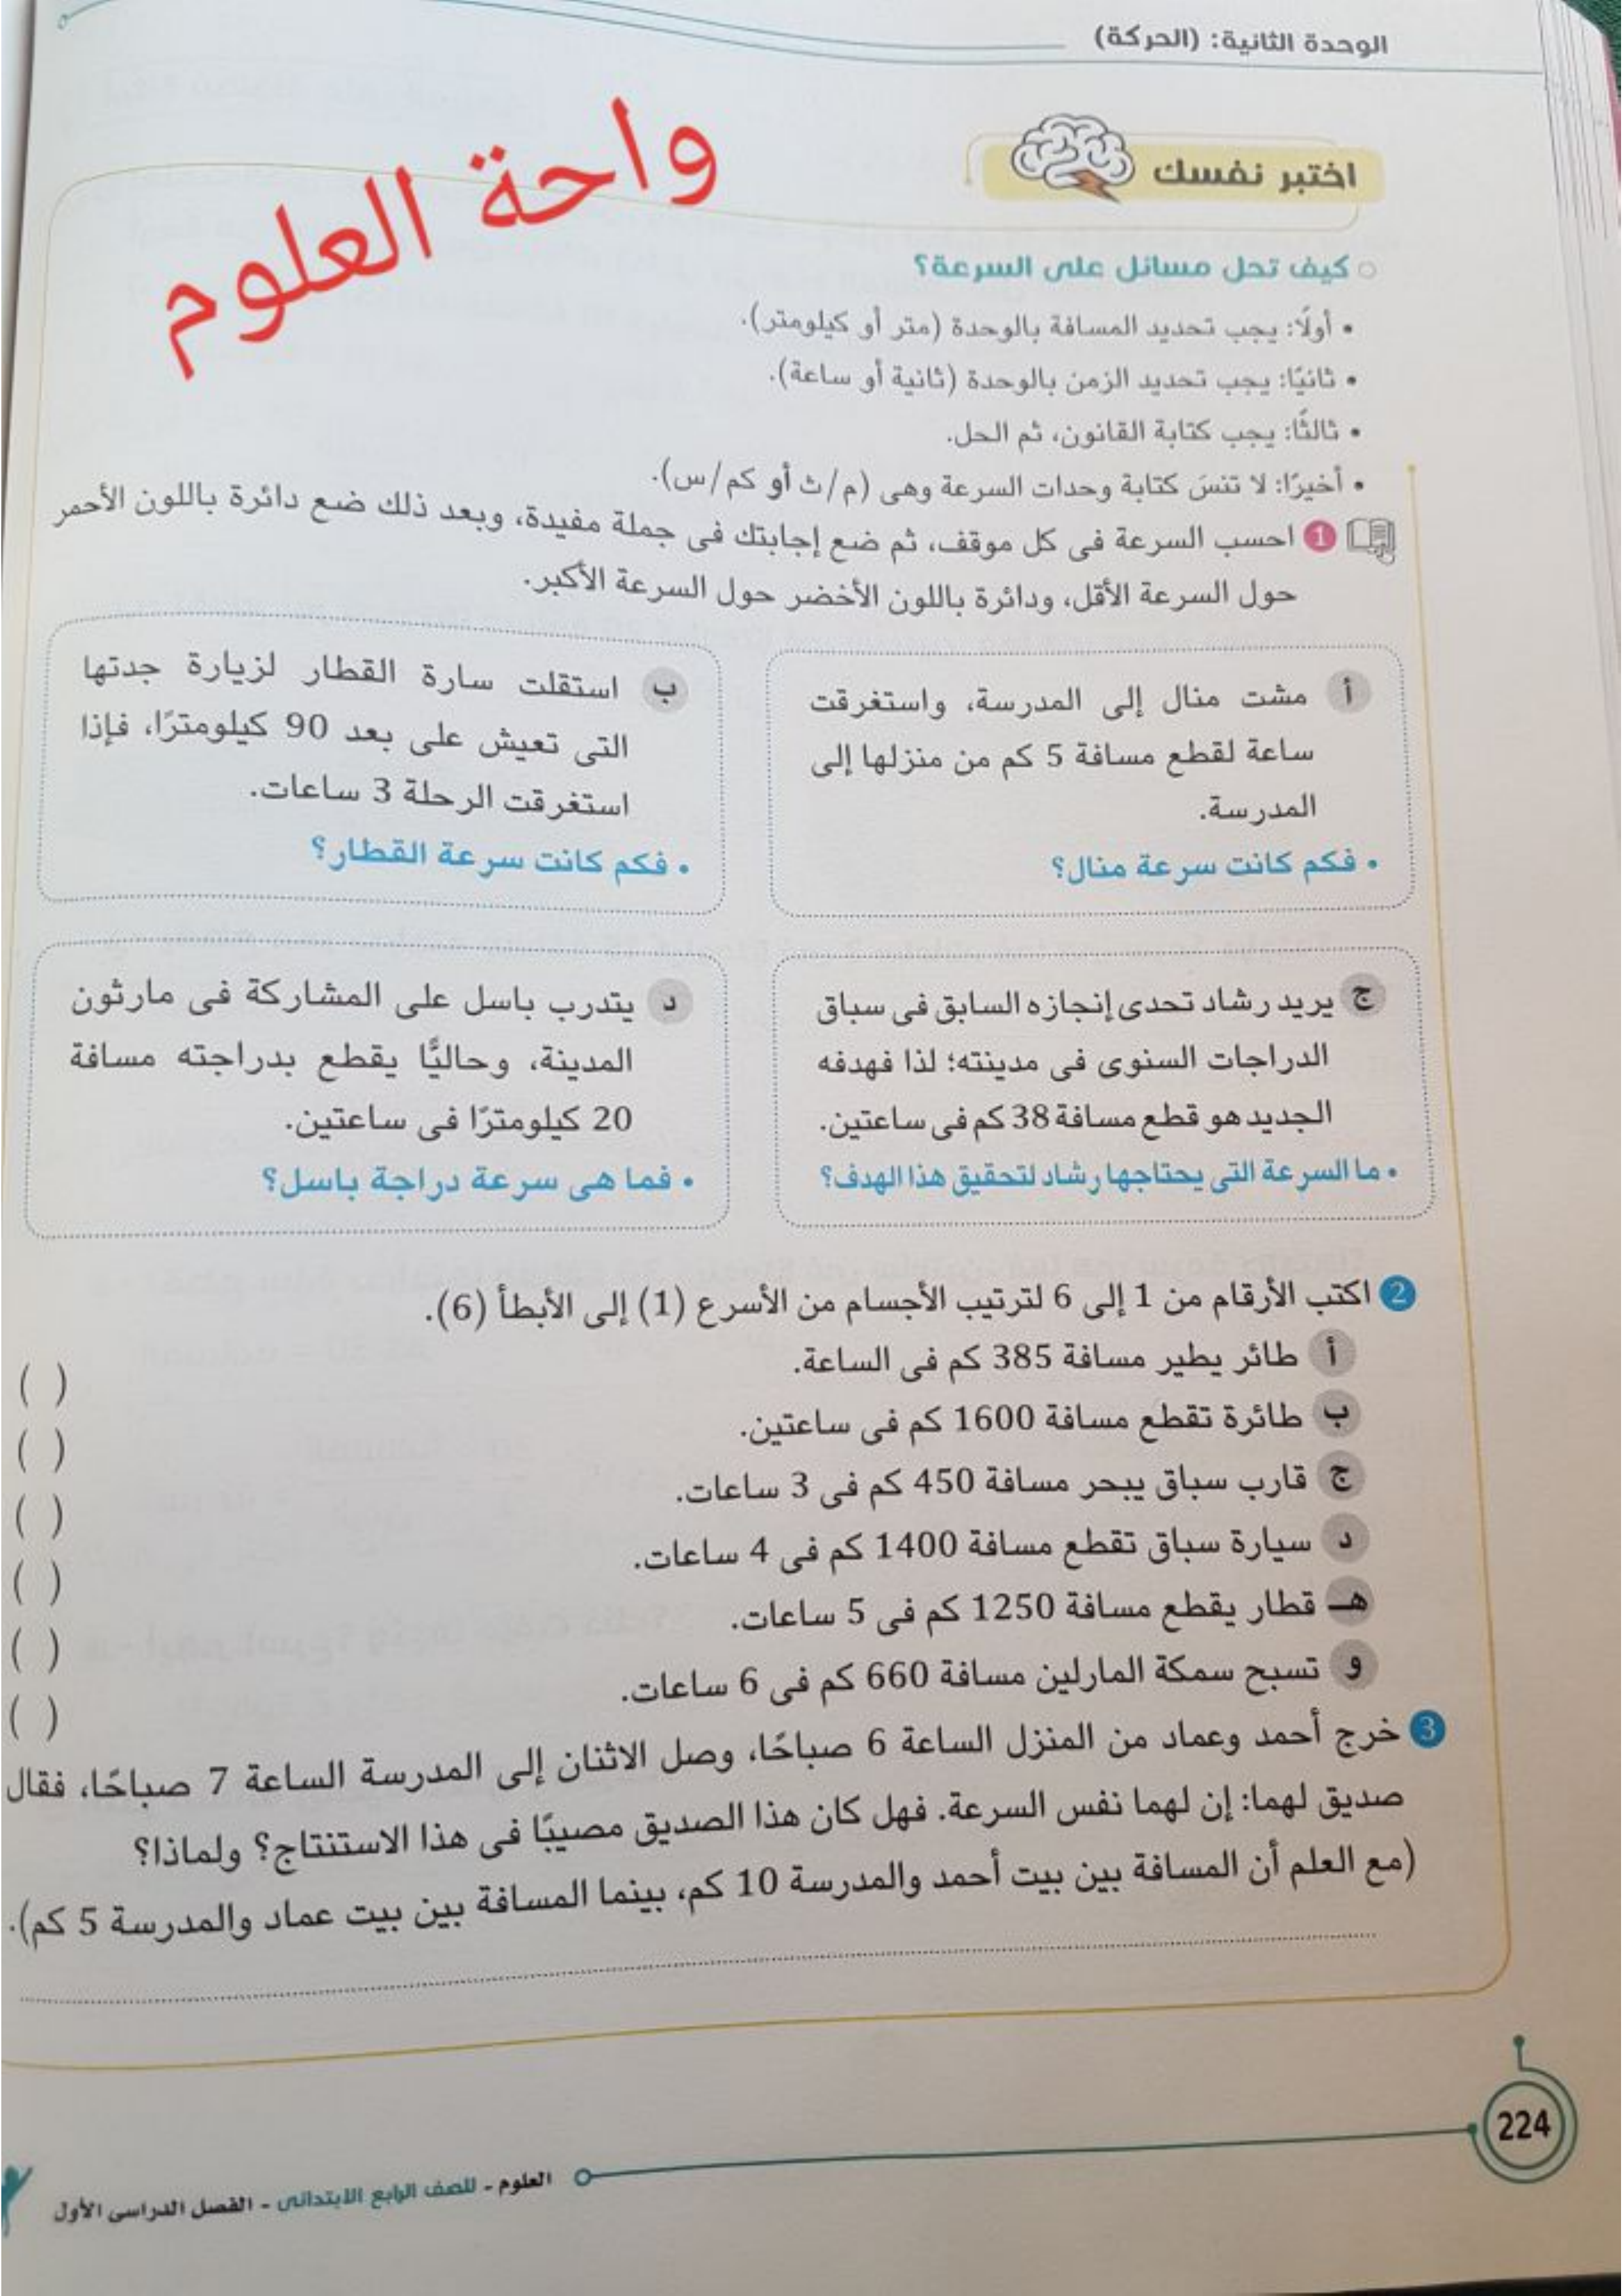 الوحدة الثانية: (الحركة)
واحة العلوم
اختبر نفسك
كيف تحل مسائل على السرعة؟
• أولًا: يجب تحديد المسافة بالوحدة (متر أو كيلومتر).
• ثانيًا: يجب تحديد الزمن بالوحدة (ثانية أو ساعة).
• ثالثًا: يجب كتابة القانون، ثم الحل.
• أخيرًا: لا تنسَ كتابة وحدات السرعة وهى (م/ث أو كم/س).
1 احسب السرعة فى كل موقف، ثم ضع إجابتك فى جملة مفيدة، وبعد ذلك ضع دائرة باللون الأحمر
حول السرعة الأقل، ودائرة باللون الأخضر حول السرعة الأكبر.
أ مشت منال إلى المدرسة، واستغرقت
ساعة لقطع مسافة 5 كم من منزلها إلى
المدرسة.
• فكم كانت سرعة منال؟
ب استقلت سارة القطار لزيارة جدتها
التى تعيش على بعد 90 كيلومترًا، فإذا
استغرقت الرحلة 3 ساعات.
• فكم كانت سرعة القطار؟
ج يريد رشاد تحدى إنجازه السابق فى سباق
الدراجات السنوى فى مدينته؛ لذا فهدفه
الجديد هو قطع مسافة 38 كم فى ساعتين.
• ما السرعة التى يحتاجها رشاد لتحقيق هذا الهدف؟
د يتدرب باسل على المشاركة فى مارثون
المدينة، وحاليًّا يقطع بدراجته مسافة
20 كيلومترًا فى ساعتين.
• فما هى سرعة دراجة باسل؟
2 اكتب الأرقام من 1 إلى 6 لترتيب الأجسام من الأسرع (1) إلى الأبطأ (6).
أ طائر يطير مسافة 385 كم فى الساعة. ( )
ب طائرة تقطع مسافة 1600 كم فى ساعتين. ( )
ج قارب سباق يبحر مسافة 450 كم فى 3 ساعات. ( )
د سيارة سباق تقطع مسافة 1400 كم فى 4 ساعات. ( )
هـ قطار يقطع مسافة 1250 كم فى 5 ساعات. ( )
و تسبح سمكة المارلين مسافة 660 كم فى 6 ساعات. ( )
3 خرج أحمد وعماد من المنزل الساعة 6 صباحًا، وصل الاثنان إلى المدرسة الساعة 7 صباحًا، فقال
صديق لهما: إن لهما نفس السرعة. فهل كان هذا الصديق مصيبًا فى هذا الاستنتاج؟ ولماذا؟
(مع العلم أن المسافة بين بيت أحمد والمدرسة 10 كم، بينما المسافة بين بيت عماد والمدرسة 5 كم).
224
العلوم - للصف الرابع الابتدائى - الفصل الدراسى الأول